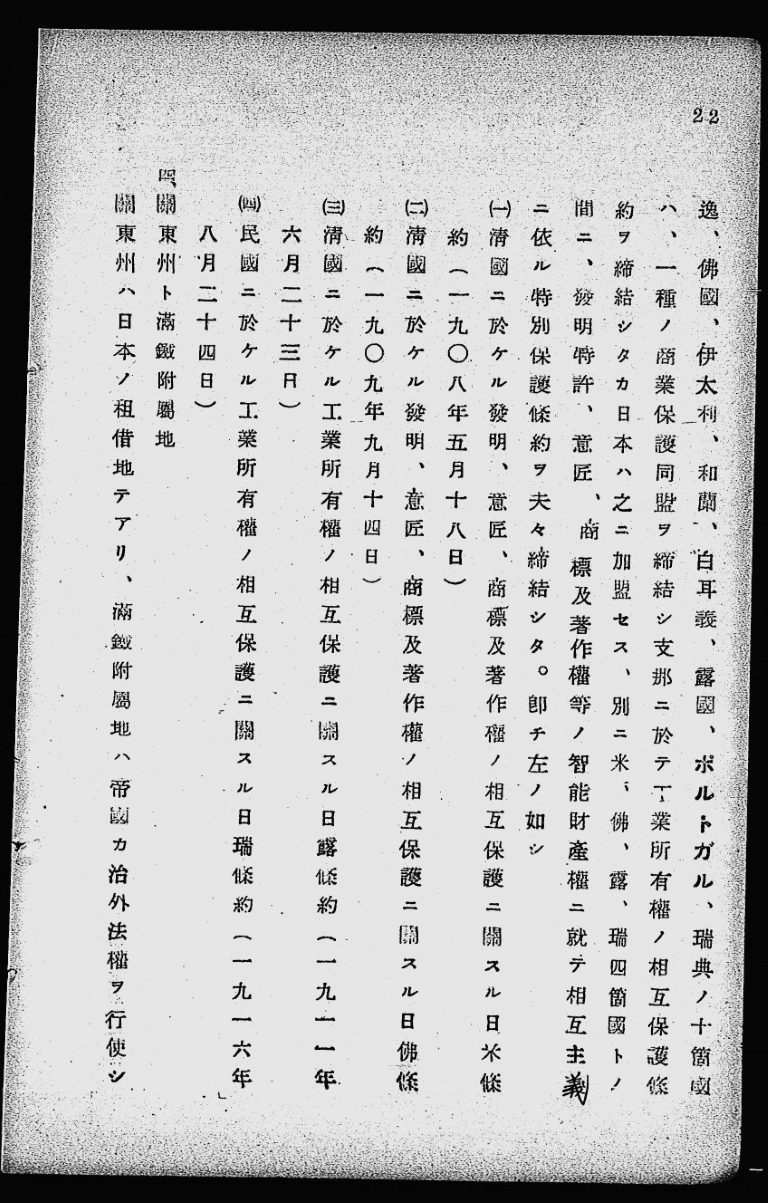 22
逸、佛國、伊太利、和蘭、白耳義、露國、ポルトガル、瑞典ノ十箇國
ハ、一種ノ商業保護同盟ヲ締結シ支那ニ於テ工業所有權ノ相互保護條
約ヲ締結シタカ日本ハ之ニ加盟セス、別ニ米、佛、露、瑞四箇國トノ
間ニ、發明特許、意匠、商標及著作權等ノ智能財產權ニ就テ相互主義
ニ依ル特別保護條約ヲ夫々締結シタ。卽チ左ノ如シ
㈠淸國ニ於ケル發明、意匠、商標及著作權ノ相互保護ニ關スル日米條
約（一九〇八年五月十八日）
㈡淸國ニ於ケル發明、意匠、商標及著作權ノ相互保護ニ關スル日佛條
約（一九〇九年九月十四日）
㈢淸國ニ於ケル工業所有權ノ相互保護ニ關スル日露條約（一九一一年
六月二十三日）
㈣民國ニ於ケル工業所有權ノ相互保護ニ關スル日瑞條約（一九一六年
八月二十四日）
四、關東州ト滿鐵附屬地
關東州ハ日本ノ租借地テアリ、滿鐵附屬地ハ帝國カ治外法權ヲ行使シ